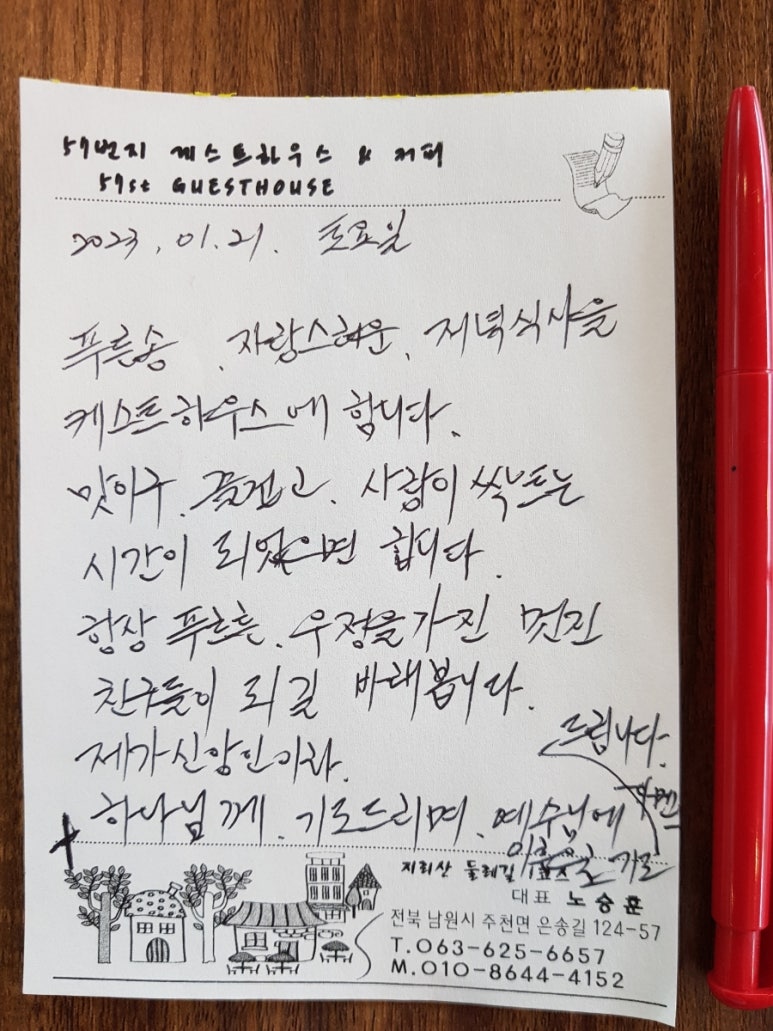 57번지 게스트하우스 & 커피
57st GUESTHOUSE
2023. 01. 21. 토요일
푸른솔, 자랑스러운, 저녁식사를
게스트하우스에 합니다.
맛이구, 즐겁고, 사랑이 싹트는
시간이 되었으면 합니다.
항상 푸르른, 우정을가진 멋진
친구들이 되길 바래봅니다.
제가신앙인이라.
하나님께, 기도드리며, 예수님에
이름으로 기도
드립니다.
아멘
지리산 둘레길 1코스
대표 노승훈
전북 남원시 주천면 은송길 124-57
T.063-625-6657
M.010-8644-4152